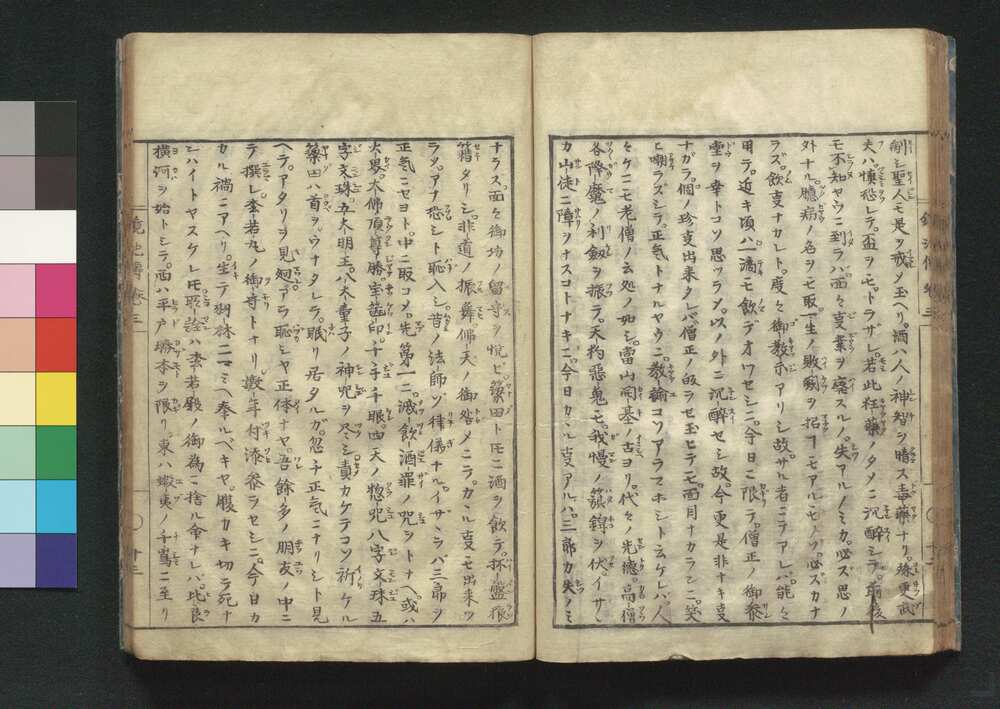 制シ聖人モ是ヲ戒メ玉ヘリ。酒ハ人ノ神智ヲ暗ス毒藥ナリ。殊更武
夫ハ懊恐レテ。盃ヲモ。トラザレ。若此狂藥ノタメニ沉醉シテ。前後
モ不知ヤウニ到ラハ。面々ノ支業ヲ忘スルノ失アルノミカ。必ズ思ノ
外ナル。臆病ノ名ヲモ取。一生ノ敗劔ヲ招ヿモアルモノゾ。必ズカナ
ラズ。飲支ナカレト。度々御教示アリシ故。サル者ニテアレバ。能々
用テ。近キ頃ハ一滴モ飲デオワセシニ。今日ニ限テ。僧正ノ御
重ヲ幸トコソ思ツラメ。以ノ外ニ沉醉セシ故。今更是非ナキ支
ナガラ。個ノ珍支出来タレバ僧正ノ皈ラセ玉ヒテモ面目ナカランニ。笑
ヒ嘲ラズシテ。正氣トナルヤウニ。教諭コソアラマホシト云ケレバ人
々ゲニモ老僧ノ云処ノ如シ。當山開基ノ古ヨリ。代々ノ先德。高僧
各降魔ノ利劔ヲ振テ。天狗惡鬼モ。我慢ノ簱鉾ヲ伏。イサヽ
カ山徒ニ障ヲナスコトナキニ。今日カヽル支アルハ。三郎カ失ノミ
ナラズ。面々御坊ノ留守ヲ悦ビ。藥田ト圧ニ酒ヲ飲テ。抔盤狼
籍タリシ。非道ノ振舞佛天ノ御咎メニテ。カヽル支モ出来ツ
ラメ。アナ恐シト恥入シ。昔ノ法師ゾ律儀ナル。イザヽラバ三郎ヲ
正氣ニセヨト。中ニ取コメ。先第一ニ。滅飲酒罪ノ咒ヲトナヘ。或ハ
火界。大佛頂尊勝宝篋印。千手千眼。四天ノ惣咒八字文殊五
字文珠。五大明王。八大童子ノ神咒ヲ尽シ。責カケテコソ祈ケル
藥田ハ首ヲ。ウナタレテ。眠リ居タルガ。忽チ正気ニナリシト見
ヘテ。アタリヲ見廻。アラ恥シヤ正体ナヤ。吾餘多ノ朋友ノ中ニ
テ撰レ。李若丸ノ御守トナリ。數年付添參ラセシニ。今日カ
カル禍ニアヘリ。生テ御妹ニマミヘ奉ルベキヤ。腹カキ切ラテ死ナ
シハイトヤスケレ圧。詮ハ李若殿ノ御為ニ捨ル命ナレバ。此良
横河ヲ始トシテ。西ハ平戸癈本ヲ限リ。東ハ蝦夷ノ千嶌ニ至リ
十二
鏡池傳 巻三
十三